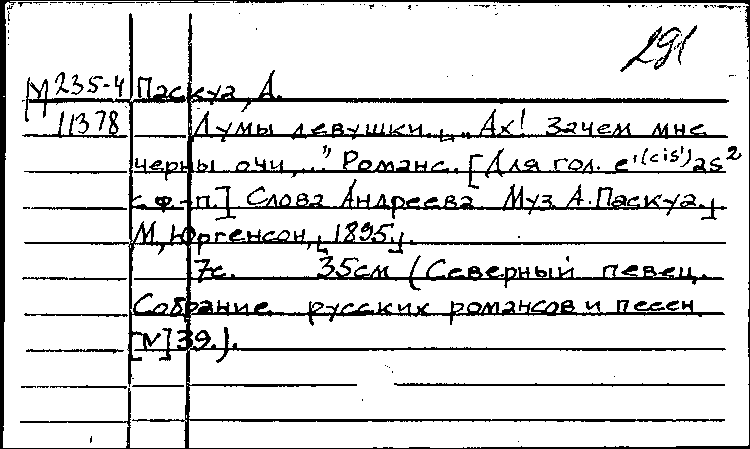 291
М 235-4 Паскуа, А.
11378 Думы девушки. „Ах! Зачем мне
черны очи,..." Романс. [Для гол. e'(cis')as²
с ф.-п.] Слова Андреева Муз. А. Паскуа.
М., Юргенсон, [1895].
7с. 35см (Северный певец.
Собрание русских романсов и песен
[N] 39.).